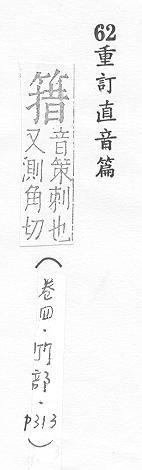 62重訂直音篇
簎
音策刺也
又測角切
(卷四·竹部·p313)